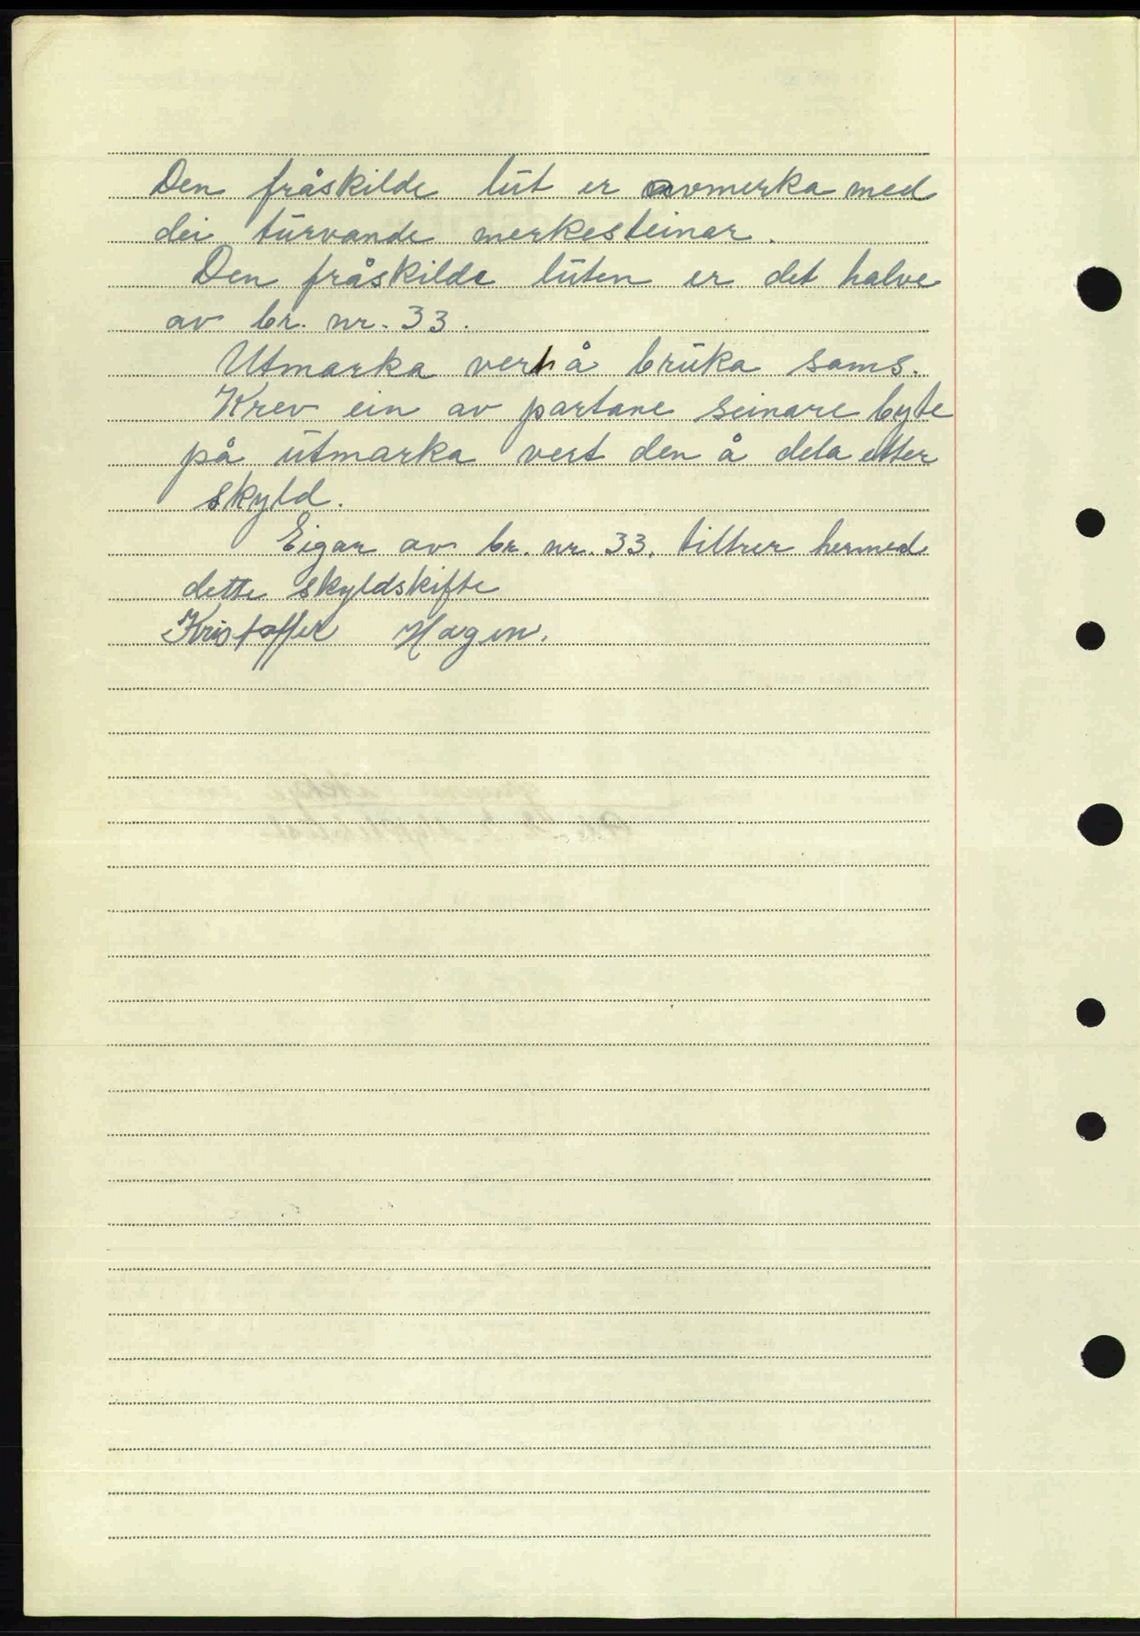 Den fråskilde lut er avmerka med
dei turvande merkesteinar.
Den fråskilde luten er det halve
av br. nr. 33.
Utmarka vert å bruka sams.
Krev ein av partane seinare byte
på utmarka vert den å dela etter
skyld.
Eigar av br. nr. 33. tiltrer hermed
dette skyldskifte
Kristoffer Hagen.